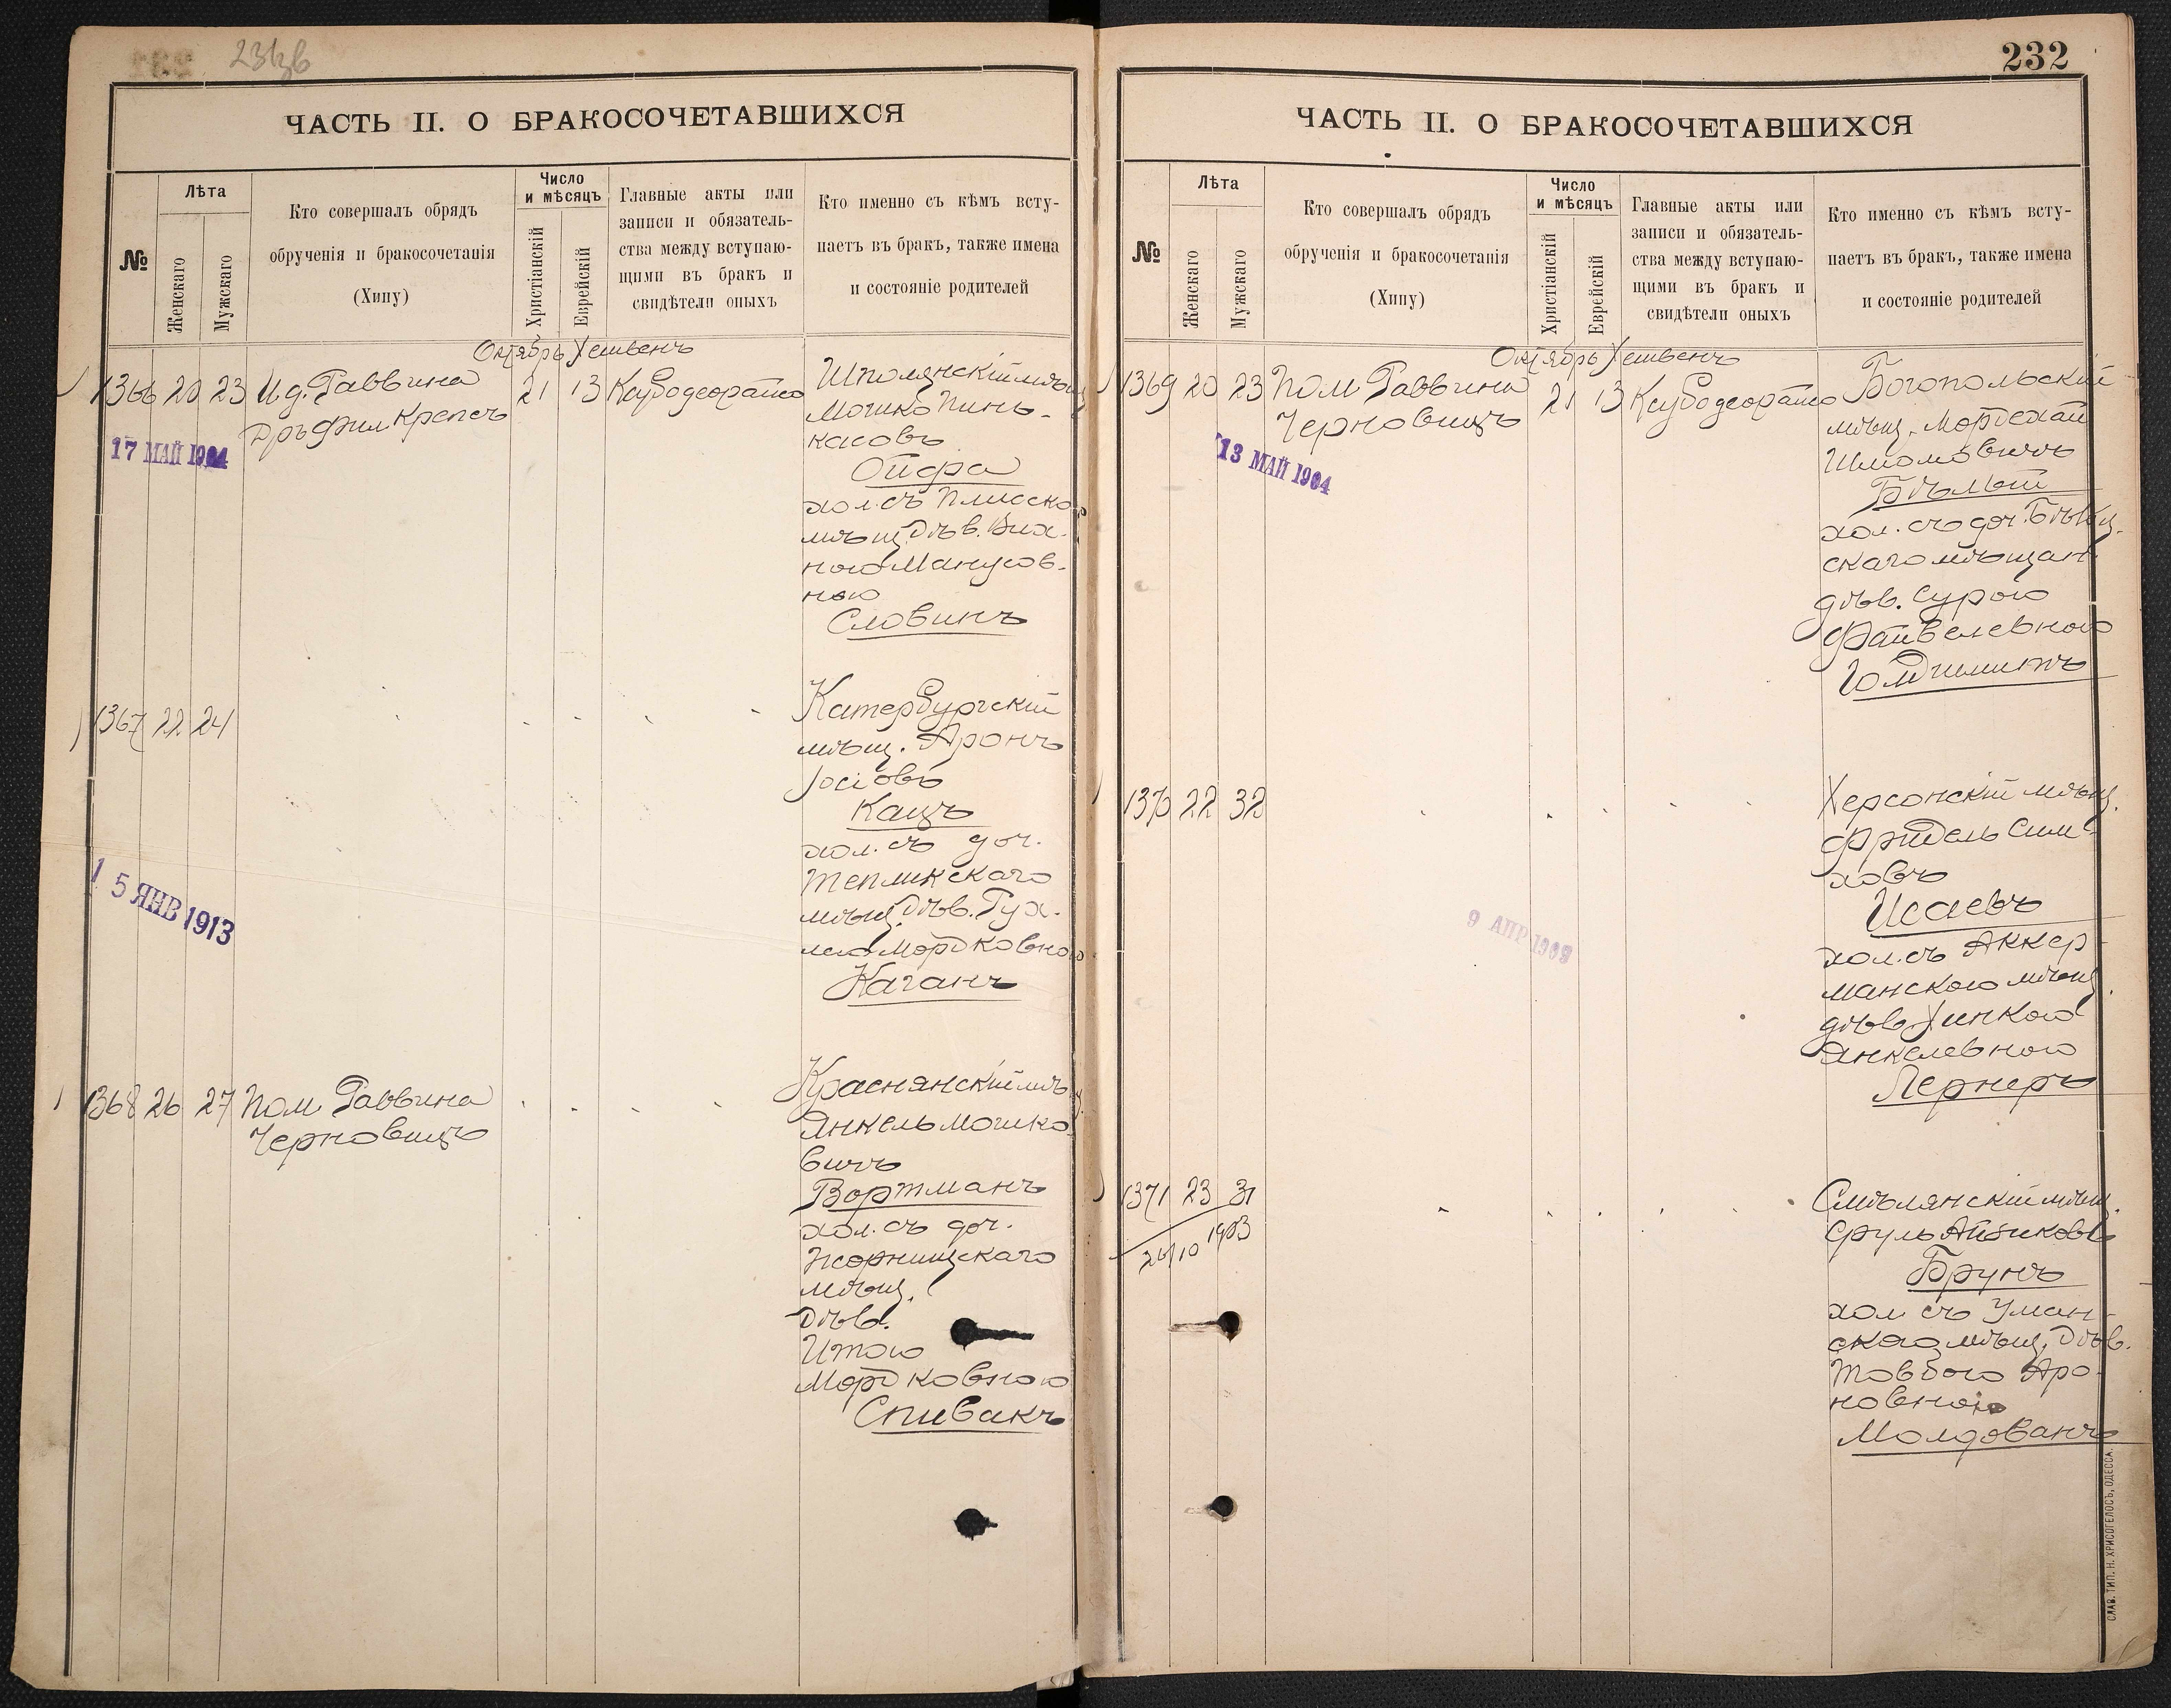 231об
ЧАСТЬ II. О БРАКОСОЧЕТАВШИХСЯ
№
Лѣта
Женскаго
Мужскаго
Кто совершалъ обрядъ
обрученія и бракосочетанія
(Хипу)
Число
и мѣсяцъ
Христіанскій
Еврейскій
Главные акты или
записи и обязатель-
ства между вступаю-
щими въ бракъ и
свидѣтели оныхъ
Кто именно съ кѣмъ всту-
паетъ въ бракъ, также имена
и состояніе родителей
Октябрь Хешвенъ
1366 20 23 И.д. Раввина 21 13
Дръ Фил Крепсъ
17 МАЙ 1904
Шполянскій мѣщ
Мошко Пинь-
касовъ
Ойфа
хол. съ Плиско
мѣщ. Дѣв. Вих-
ною Манусов-
ною
Словинъ
1367 22 24
Катербургскій
мѣщ. Аронъ
Іосіовъ
Кацъ
хол. съ доч.
Теплинскаго
мѣщ. Дѣв. Рух-
лею Мордковною
Каганъ
15 ЯНВ 1913
1368 26 27 Пом. Раввина
Черновицъ
Краснянскій мѣщ
Янкель Мошко
вичъ
Вортманъ
хол. съ доч.
Жорнищскаго
мѣщ.
Дѣв.
Итою
Мордковною
Спивакъ
232
ЧАСТЬ II. О БРАКОСОЧЕТАВШИХСЯ
№
Лѣта
Женскаго
Мужскаго
Кто совершалъ обрядъ
обрученія и бракосочетанія
(Хипу)
Число
и мѣсяцъ
Христіанскій
Еврейскій
Главные акты или
записи и обязатель-
ства между вступаю-
щими въ бракъ и
свидѣтели оныхъ
Кто именно съ кѣмъ всту-
паетъ въ бракъ, также имена
и состояніе родителей
Октябрь Хешвенъ
1369 20 23 Пом Раввина 21 13
Черновицъ
13 МАЙ 1904
Богопольскій
мѣщ. Мордехай
Шлиомовичъ
Бѣлый
хол. съ доч.
скаго мѣщан.
дѣв. Сурою
Файвелевною
1370 22 32
9 АПР
Херсонскій мѣщ.
Фридель Сим-
ховъ
Исаевъ
хол. съ Аккер-
манскою мѣщ.
дѣв. Хинкою
Янкелевною
Лернеръ
1371 23 31
26/10 1903
Смѣлянскій мѣщ.
Сруль Айзиковъ
Брунъ
хол. съ Уман-
скою мѣщ. Дѣв.
Товбою Аро-
новною
Молдованъ
СЛАВ. ТИП. Н. ХРИСОГЕЛОСЪ, ОДЕССА.